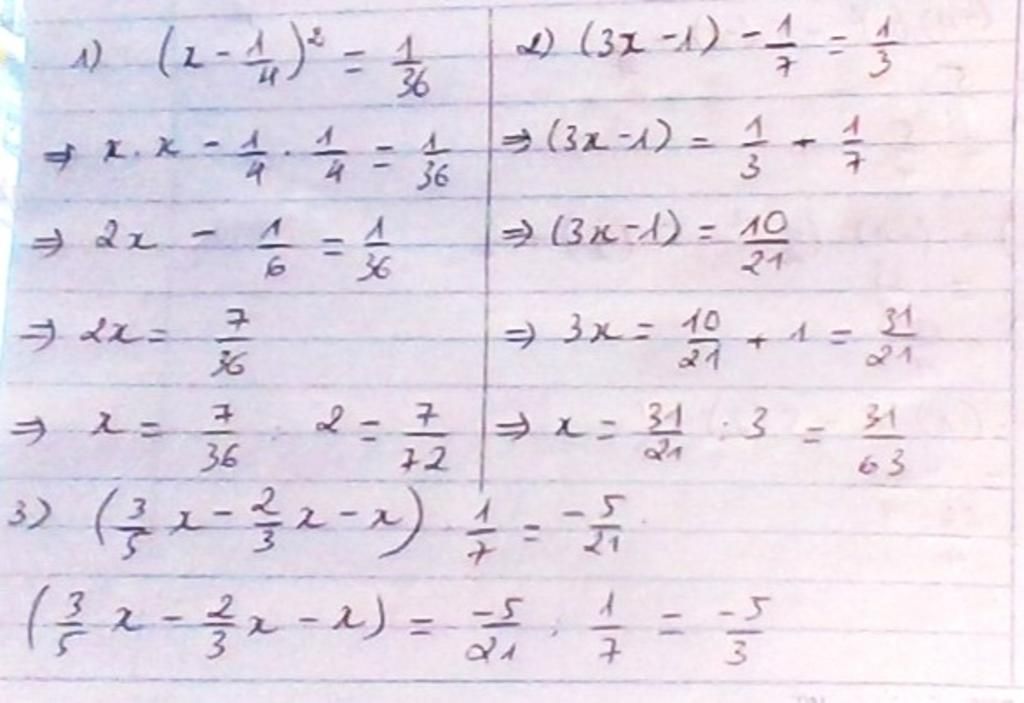 1) (x - 1/4)² = 1/36
⇒ x . x - 1/4 . 1/4 = 1/36
⇒ 2x - 1/6 = 1/36
⇒ 2x = 7/36
⇒ x = 7/36 : 2 = 7/72
2) (3x - 1) - 1/7 = 1/3
⇒ (3x - 1) = 1/3 + 1/7
⇒ (3x - 1) = 10/21
⇒ 3x = 10/21 + 1 = 31/21
⇒ x = 31/21 : 3 = 31/63
3) (3/5 x - 2/3 x - x) . 1/7 = -5/21
(3/5 x - 2/3 x - x) = -5/21 : 1/7 = -5/3